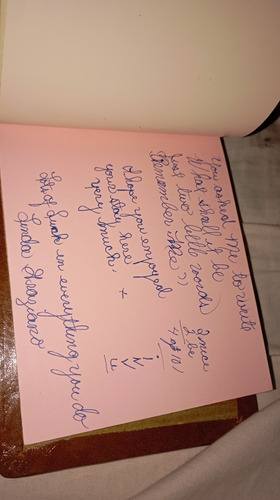 You asked me to write
What shall it be
Just two little words
(Remember Me)
2 nice
2 be
4 got 10
I hope you enjoyed
your stay here
very much.
Lots of Luck in everything you do
Linda Graziano